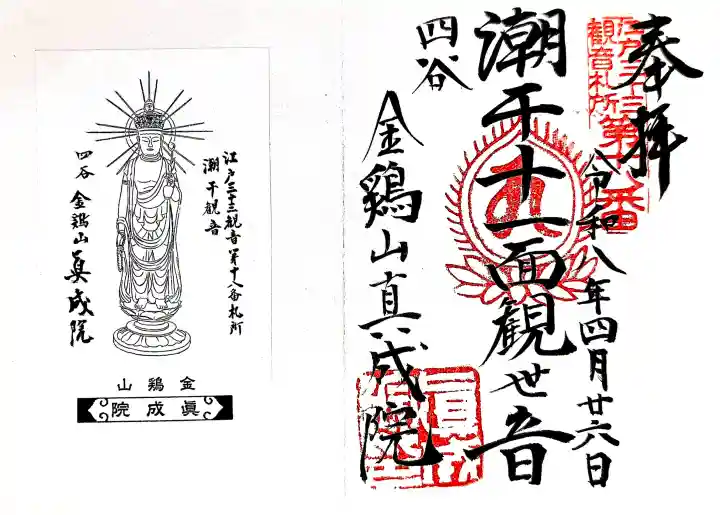 奉拝
江戸三十三
観音札所
第十八番
令和八年四月廿六日
潮干十一面観世音
四谷
金鶏山真成院
江戸三十三観音第十八番札所
潮干観音
四谷 金鶏山 眞成院
金鶏山
眞成院